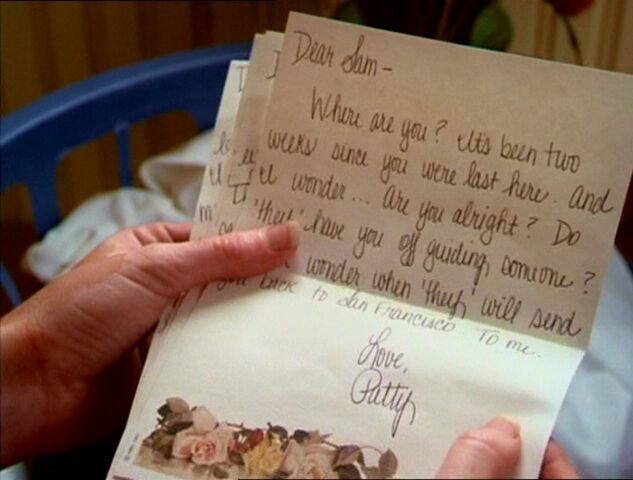 Dear Sam-
Where are you? It's been two
weeks since you were last here. And
I wonder... Are you alright? Do
'they' have you off guiding someone?
I wonder when 'they' will send
you back to San Francisco. To me.
Love,
Patty